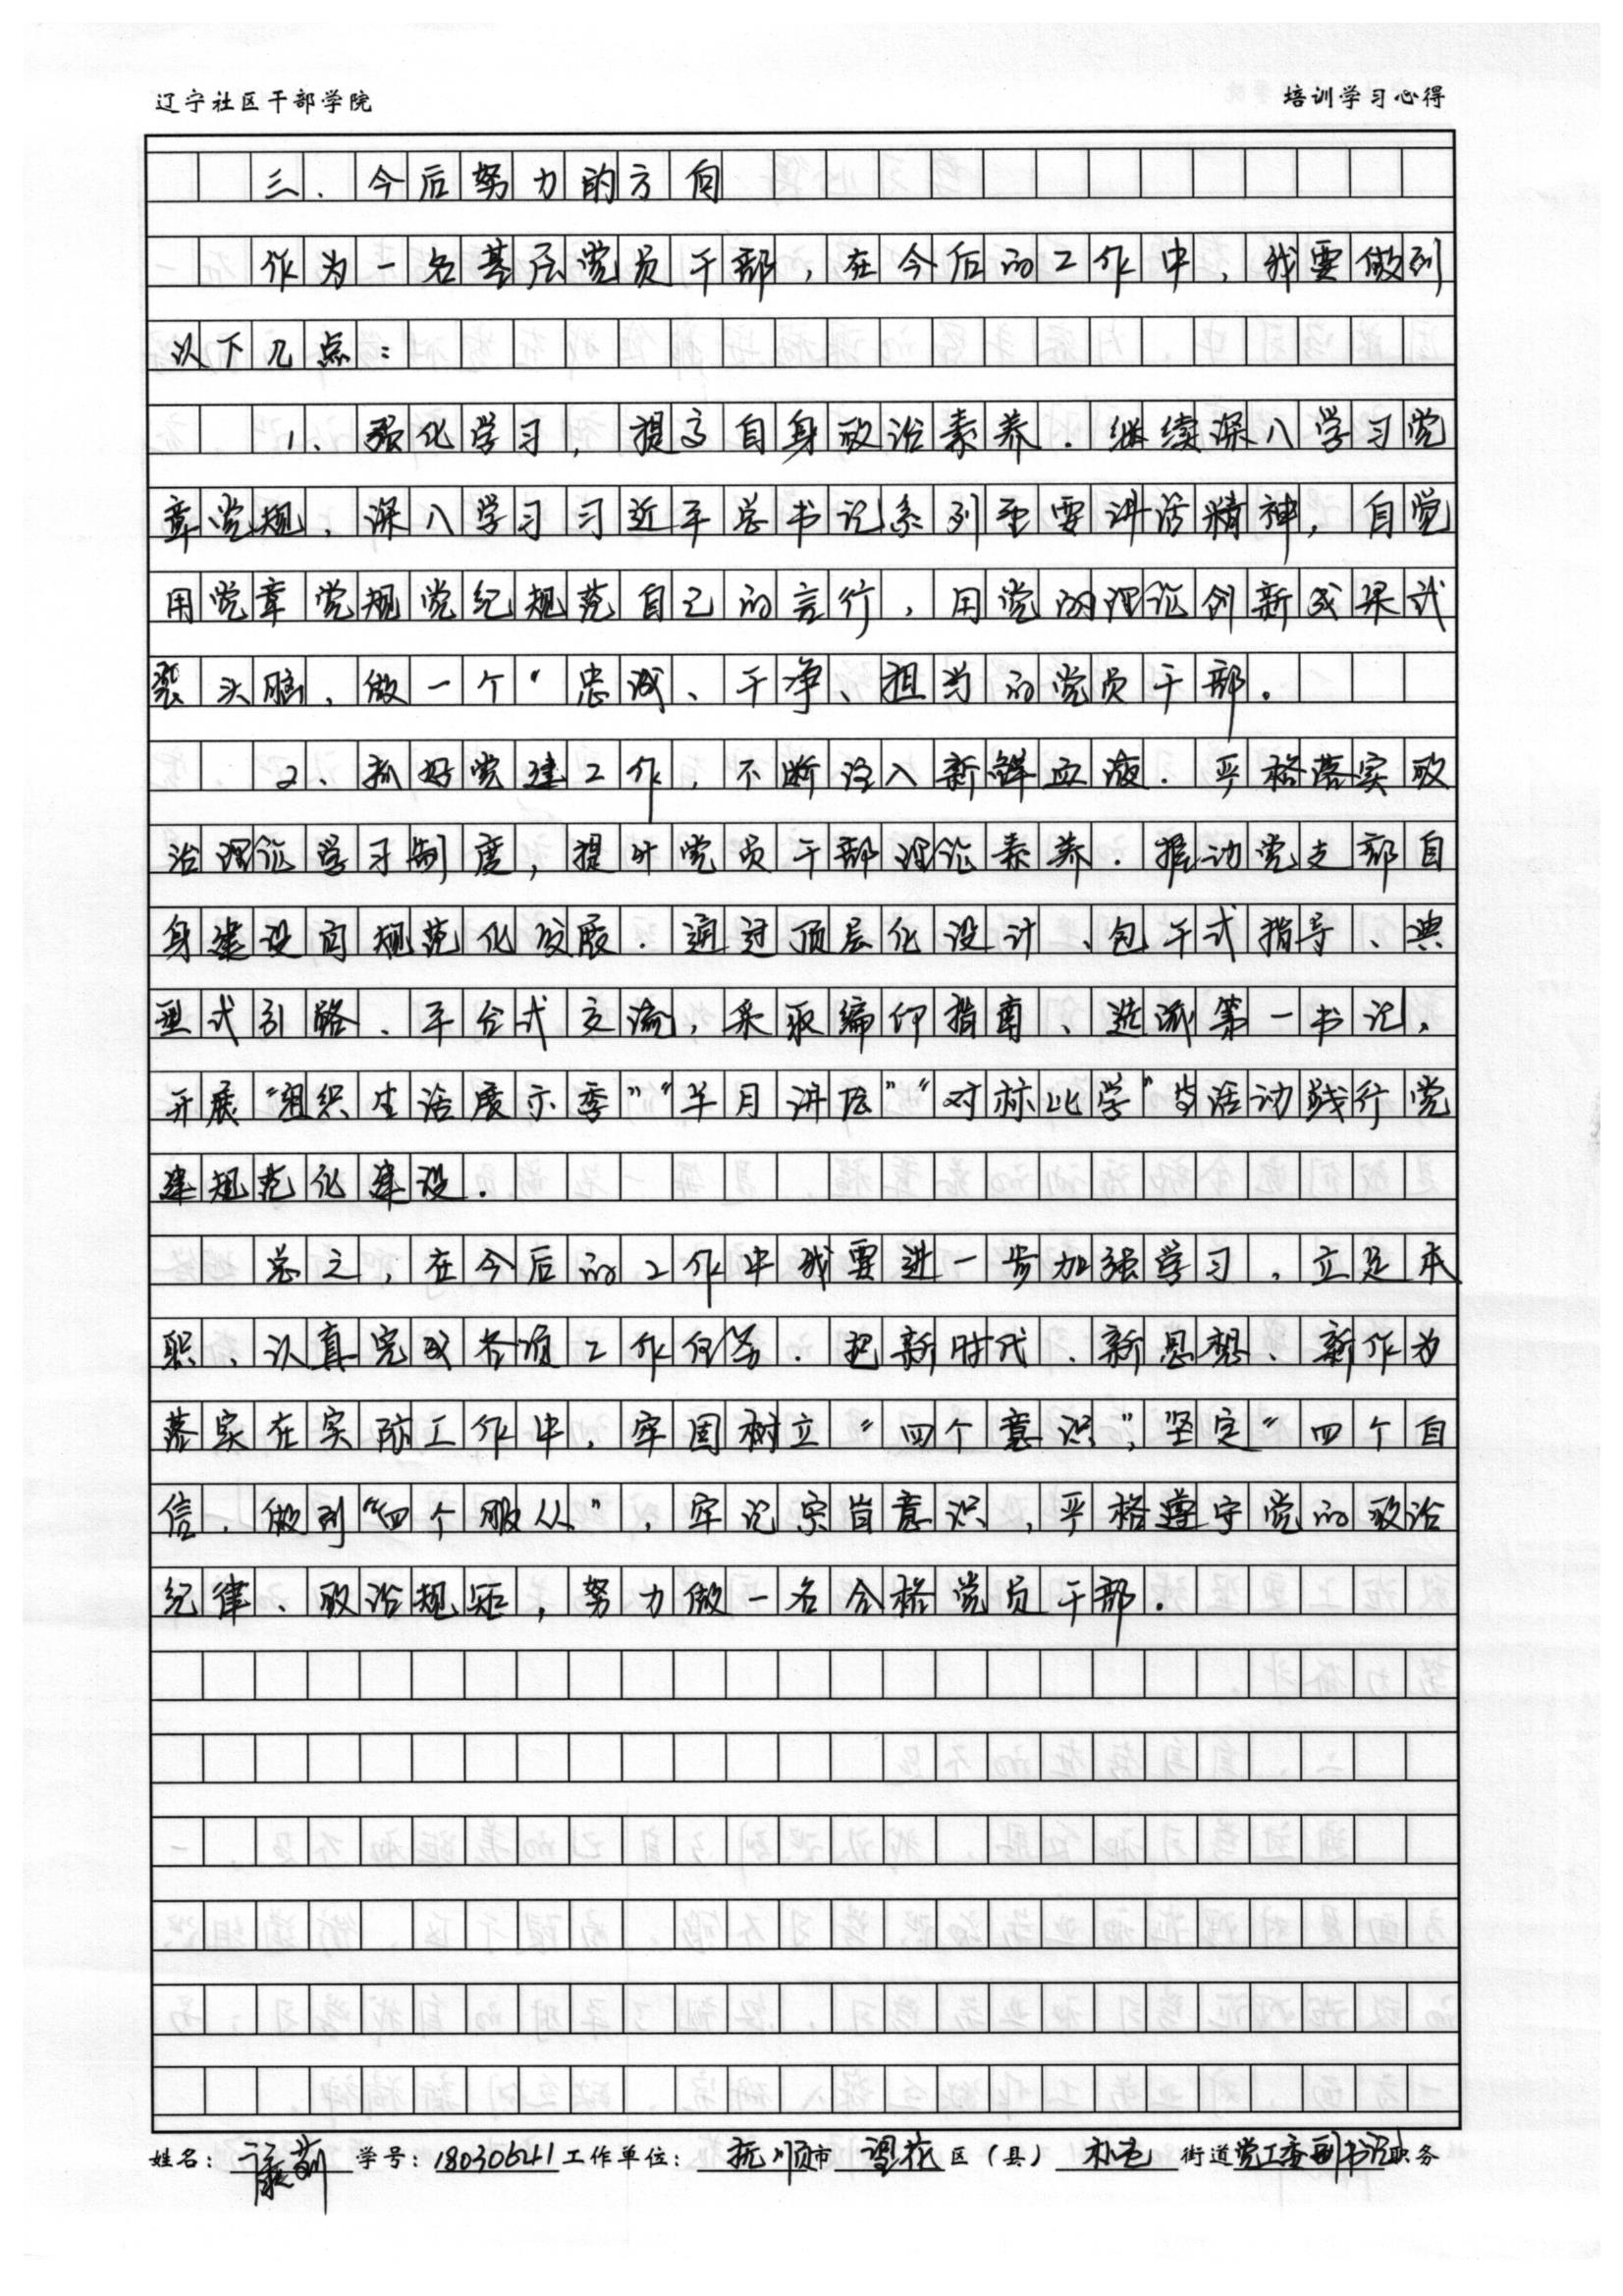 辽宁社区干部学院 培训学习心得
三、今后努力的方向
作为一名基层党员干部，在今后的工作中，我要做到
以下几点：
1、强化学习，提高自身政治素养．继续深入学习党
章党规，深入学习习近平总书记系列重要讲话精神，自觉
用党章党规党纪规范自己的言行，用党的理论创新成果武
装头脑，做一个“忠诚、干净、担当的党员干部。
2、抓好党建工作，不断注入新鲜血液．严格落实政
治理论学习制度，提升党员干部理论素养．推动党支部自
身建设向规范化发展．通过顶层化设计、包干式指导、典
型式引路、平台式交流，采取编印指南、选派第一书记，
开展“组织生活展示季”“半月讲坛”“对标比学”等活动践行党
建规范化建设．
总之，在今后的工作中我要进一步加强学习，立足本
职、认真完成各项工作任务．把新时代、新思想、新作为
落实在实际工作中，牢固树立“四个意识”，坚定“四个自
信，做到“四个服从”，牢记宗旨意识，严格遵守党的政治
纪律、政治规矩，努力做一名合格党员干部．
姓名： 学号：18030641 工作单位：抚顺市望花区（县）朴屯街道党工委副书记职务